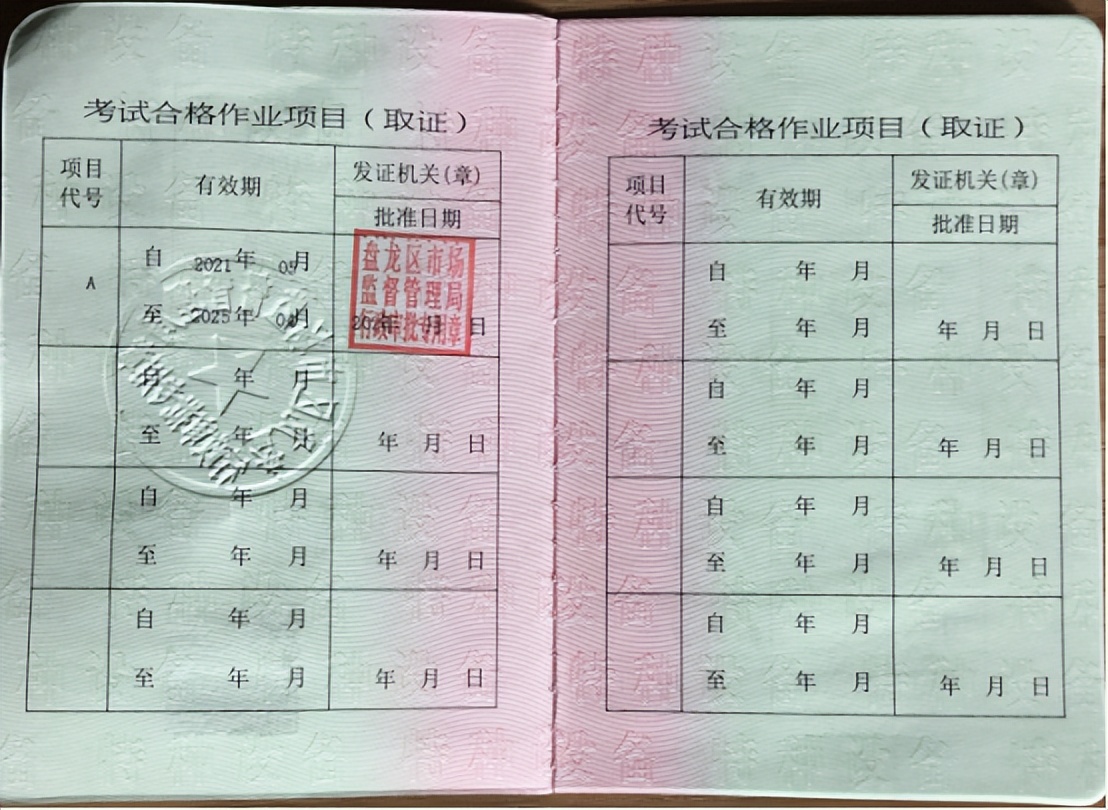 考试合格作业项目（取证）
项目代号 有效期 发证机关(章)
批准日期
A 自 2021年 05月
至 2025年 04月 日
盘龙区市场
监督管理局
行政审批专用章
自 年 月
至 年 月 年 月 日
自 年 月
至 年 月 年 月 日
自 年 月
至 年 月 年 月 日
考试合格作业项目（取证）
项目代号 有效期 发证机关(章)
批准日期
自 年 月
至 年 月 年 月 日
自 年 月
至 年 月 年 月 日
自 年 月
至 年 月 年 月 日
自 年 月
至 年 月 年 月 日
特种设备